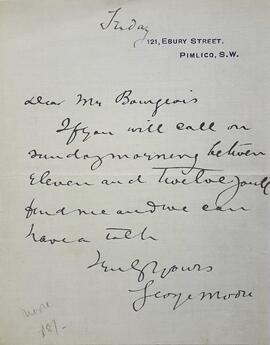 Friday
121, EBURY STREET,
PIMLICO, S.W.
Dear Mr Bourgeois
If you will call on
Sunday morning between
eleven and twelve you'll
find me and we can
have a talk
Yours
George Moore